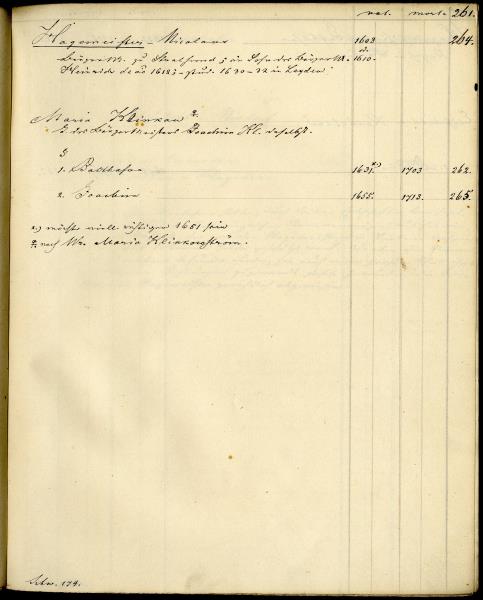 nat. mort. 261.
Hagemeister - Nicolaus 1603 264.
Bürgerm. zu Stralsund; Sohn des Bürgerm. od. 1610.
Heinrich de ao 1618; - stud. 1630-32 in Leyden
Maria Klinkow 2.
T. des Bürgermeisters Joachim Kl. daselbst.
1. Balthasar 1631 x) 1703 262.
2. Joachim 1655. 1713. 265.
x) möchte wohl richtiger 1651 sein
2. nach Maria Klinkowström.
174.